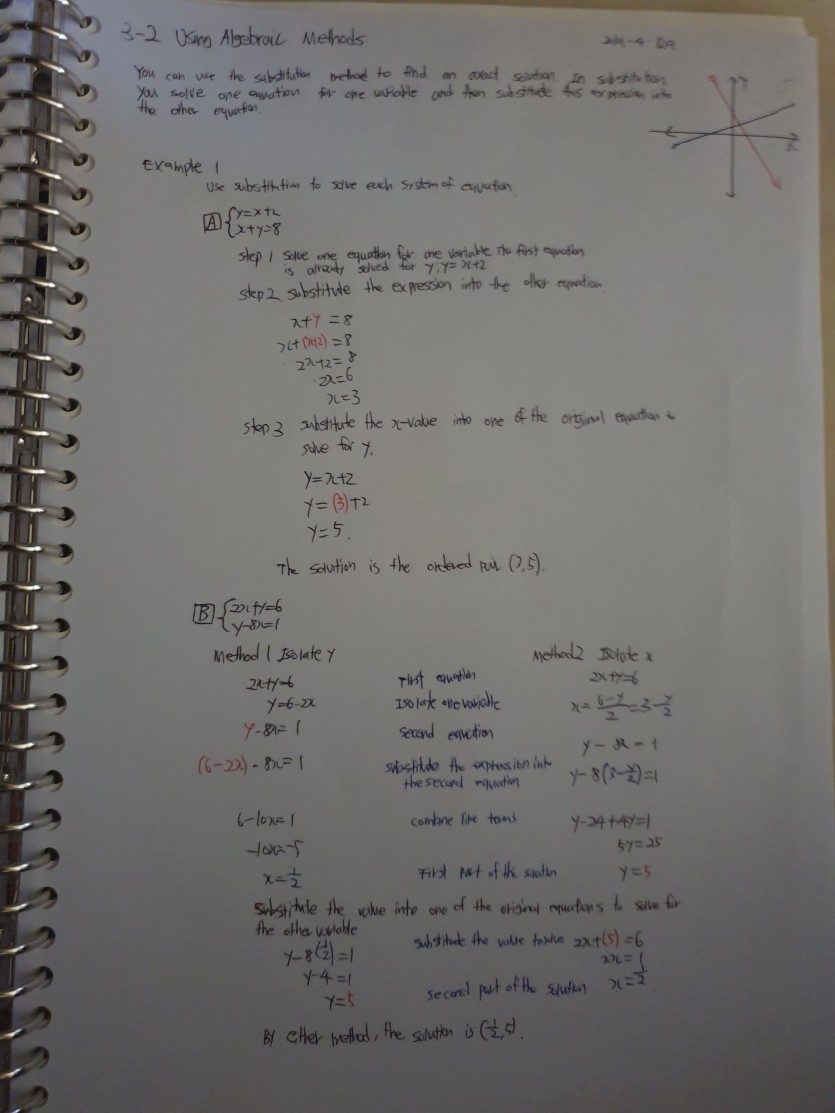 3-2 Using Algebraic Methods
You can use the substitution method to find an exact solution. In substitution
You solve one equation for one variable and then substitute this expression into
the other equation.
y
x
Example 1
Use substitution to solve each system of equation
A {y=x+2
x+y=8
step 1 solve one equation for one variable The first equation
is already solved for y: y=x+2
step 2 substitute the expression into the other equation
x+y=8
x+(x+2)=8
2x+2=8
2x=6
x=3
step 3 substitute the x-value into one of the original equation &
solve for y.
y=x+2
y=(3)+2
y=5.
The solution is the ordered pair (3,5).
B {2x+y=6
y-8x=1
Method 1 Isolate y
Method 2 Isolate x
2x+y=6 First equation 2x+y=6
y=6-2x Isolate one variable x=6-y/2=3-y/2
y-8x=1 second equation y-8x=1
(6-2x)-8x=1 substitute the expression into y-8(3-y/2)=1
the second equation
6-10x=1 combine like terms y-24+4y=1
-10x=-5 5y=25
x=1/2 First part of the solution y=5
Substitute the value into one of the original equations to solve for
the other variable
y-8(1/2)=1 substitute the value to solve 2x+(5)=6
y-4=1 2x=1
y=5 second part of the solution x=1/2
By either method, the solution is (1/2,5).